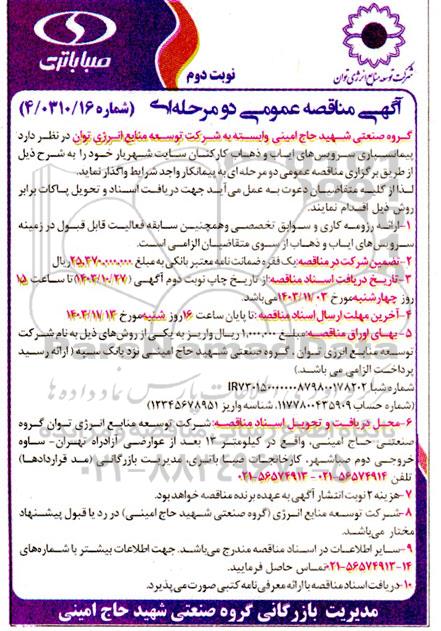 صبا باتری
نوبت دوم
شرکت توسعه منابع انرژی توان
آگهی مناقصه عمومی دو مرحله‌ای (شماره ۴/۰۳۱۰/۱۶)
گروه صنعتی شهید حاج امینی وابسته به شرکت توسعه منابع انرژی توان در نظر دارد
پیمانسپاری سرویس‌های ایاب و ذهاب کارکنان سایت شهریار خود را به شرح ذیل
از طریق برگزاری مناقصه عمومی دو مرحله ای به پیمانکار واجد شرایط واگذار نماید.
لذا از کلیه متقاضیان دعوت به عمل می آید جهت دریافت اسناد و تحویل پاکات برابر
روش ذیل اقدام نمایند.
۱-ارائه رزومه کاری و سوابق تخصصی وهمچنین سابقه فعالیت قابل قبول در زمینه
سرویس‌های ایاب و ذهاب از سوی متقاضیان الزامی است.
۲-تضمین شرکت در مناقصه:یک فقره ضمانت نامه معتبر بانکی به مبلغ ۲۵,۳۷۰,۰۰۰,۰۰۰ریال
۳-تاریخ دریافت اسناد مناقصه:از تاریخ چاپ نوبت دوم آگهی (۱۴۰۳/۱۰/۲۷) تا ساعت ۱۵
روز چهارشنبه مورخ ۱۴۰۳/۱۱/۰۳ می‌باشد.
۴-آخرین مهلت ارسال اسناد مناقصه :تا پایان ساعت ۱۶ روز شنبه مورخ ۱۴۰۳/۱۱/۱۳
۵- بهای اوراق مناقصه: مبلغ ۱,۰۰۰,۰۰۰ ریال واریز به یکی از روش‌های ذیل به نام شرکت
توسعه منابع انرژی توان ، گروه صنعتی شهید حاج امینی نزد بانک سپه (ارائه رسید
پرداخت الزامی می باشد.)
شماره شبا IR۷۳۰۱۵۰۰۰۰۰۰۸۷۹۸۰۰۱۷۸۲۰۲
(شماره حساب ۱۱۷۷۸۰۰۴۳۵۹۰۹، شناسه واریز ۱۲۳۴۵۶۷۸۹۵۱)
۶-محل دریافت و تحویل اسناد مناقصه: شرکت توسعه منابع انرژی توان گروه
صنعتی حاج امینی، واقع در کیلومتر ۱۳ بعد از عوارضی آزادراه تهران- ساوه
خروجی دوم صباشهر، کارخانجات صبا باتری، مدیریت بازرگانی (مد قراردادها)
تلفن ۵۶۵۷۴۹۱۴-۰۲۱ ۵۶۵۷۴۹۱۳-۰۲۱
۷-هزینه ۲ نوبت انتشار آگهی به عهده برنده مناقصه خواهد بود.
۸-شرکت توسعه منابع انرژی (گروه صنعتی شهید حاج امینی) در رد یا قبول پیشنهاد
مختار می‌باشد.
۹-سایر اطلاعات در اسناد مناقصه مندرج می‌باشد. جهت اطلاعات بیشتر با شماره‌های
۱۴-۵۶۵۷۴۹۱۳-۰۲۱تماس حاصل فرمایید.
۱۰-دریافت اسناد مناقصه با ارائه معرفی نامه کتبی صورت می پذیرد.
مدیریت بازرگانی گروه صنعتی شهید حاج امینی